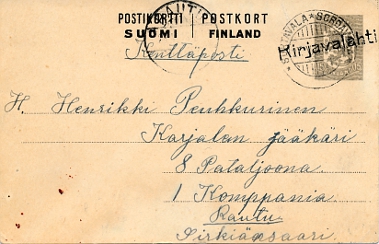 POSTIKORTTI POSTKORT
SUOMI FINLAND
Kenttäposti
Kirjavalahti
H. Henrikki Peuhkurinen
Karjalan jääkäri
8 Pataljoona.
1 Komppania
Rautu
Sirkiänsaari.